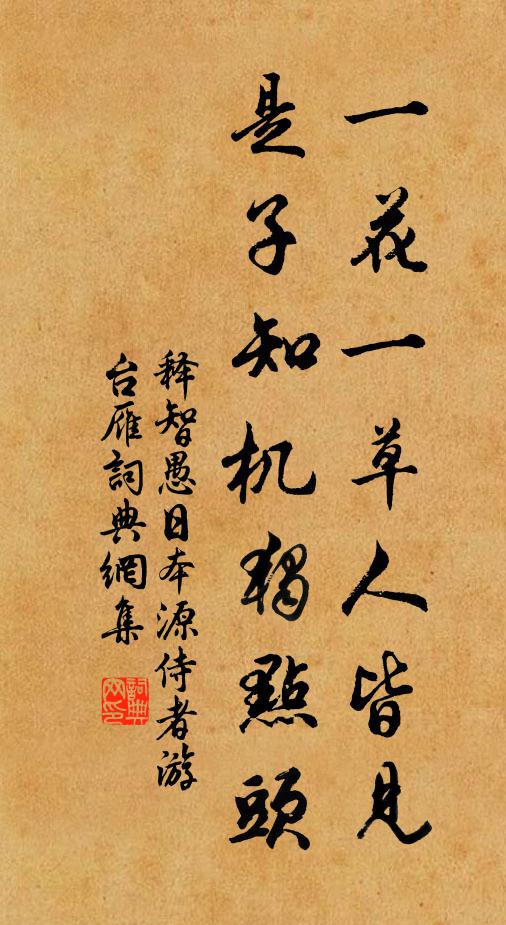 一花一草人皆見
是子知机獨點頭
释智愚日本源侍者游
台雁詞典網集
詞典
网印